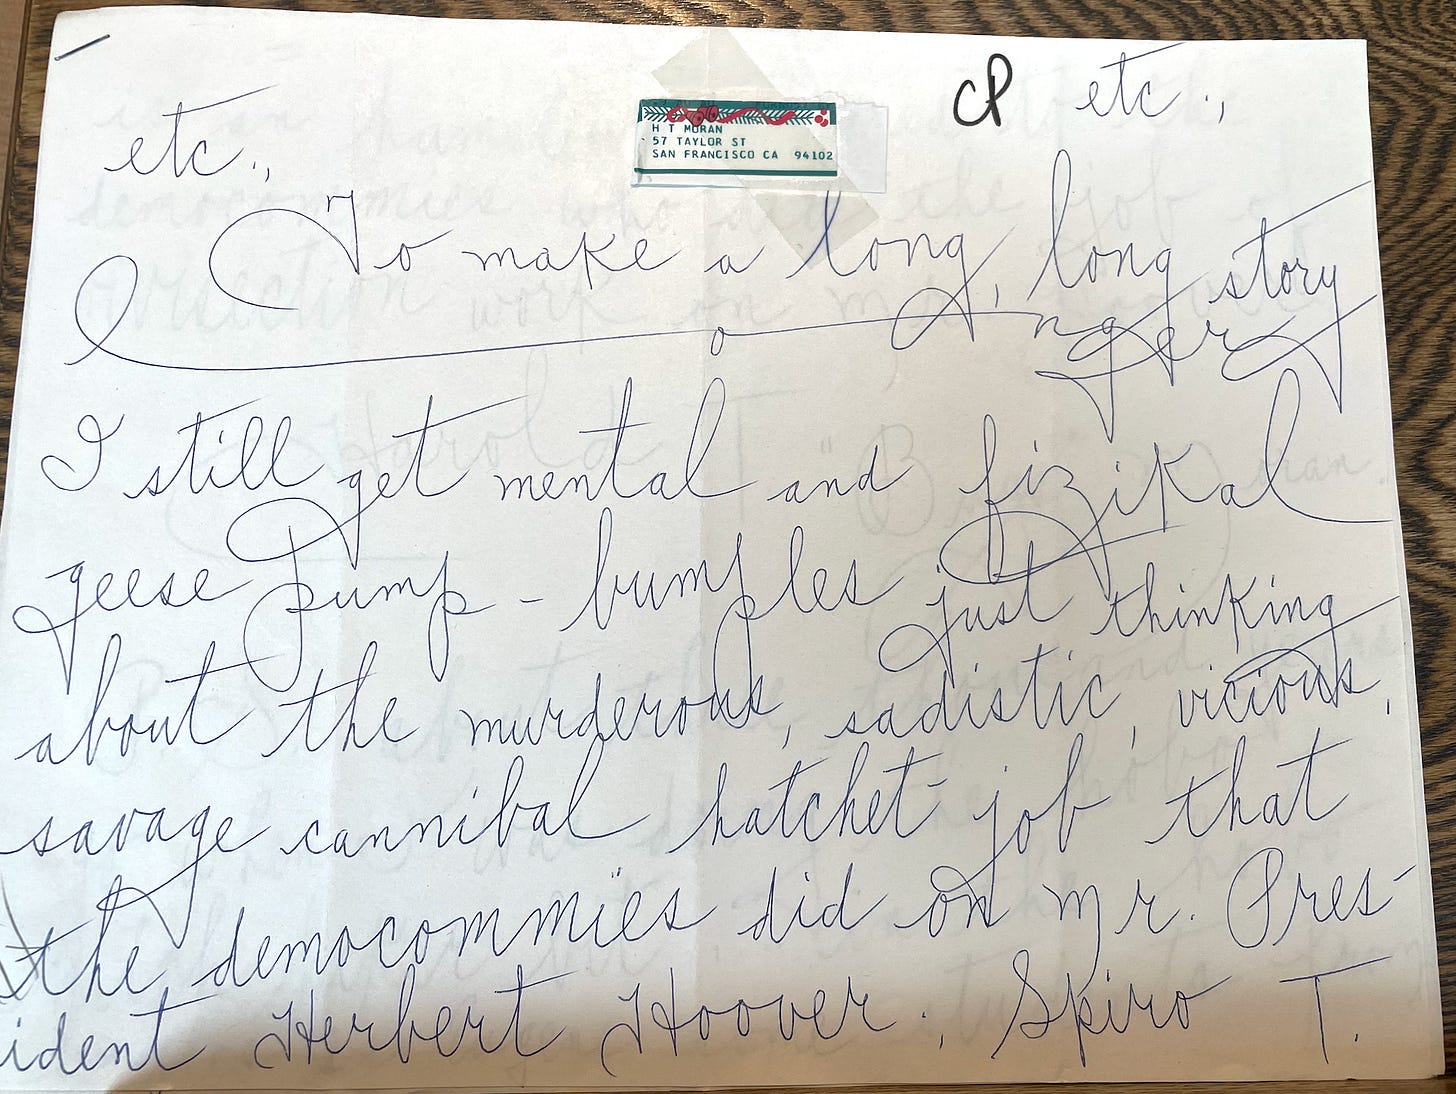 cP etc.,
etc.,
H T MORAN
57 TAYLOR ST
SAN FRANCISCO CA 94102
To make a long, long story
longer
I still get mental and fizikal
geese pump-bumples just thinking
about the murderous, sadistic, vicious,
savage cannibal hatchet-job that
the democommies did on Mr. Pres-
ident Herbert Hoover; Spiro T.